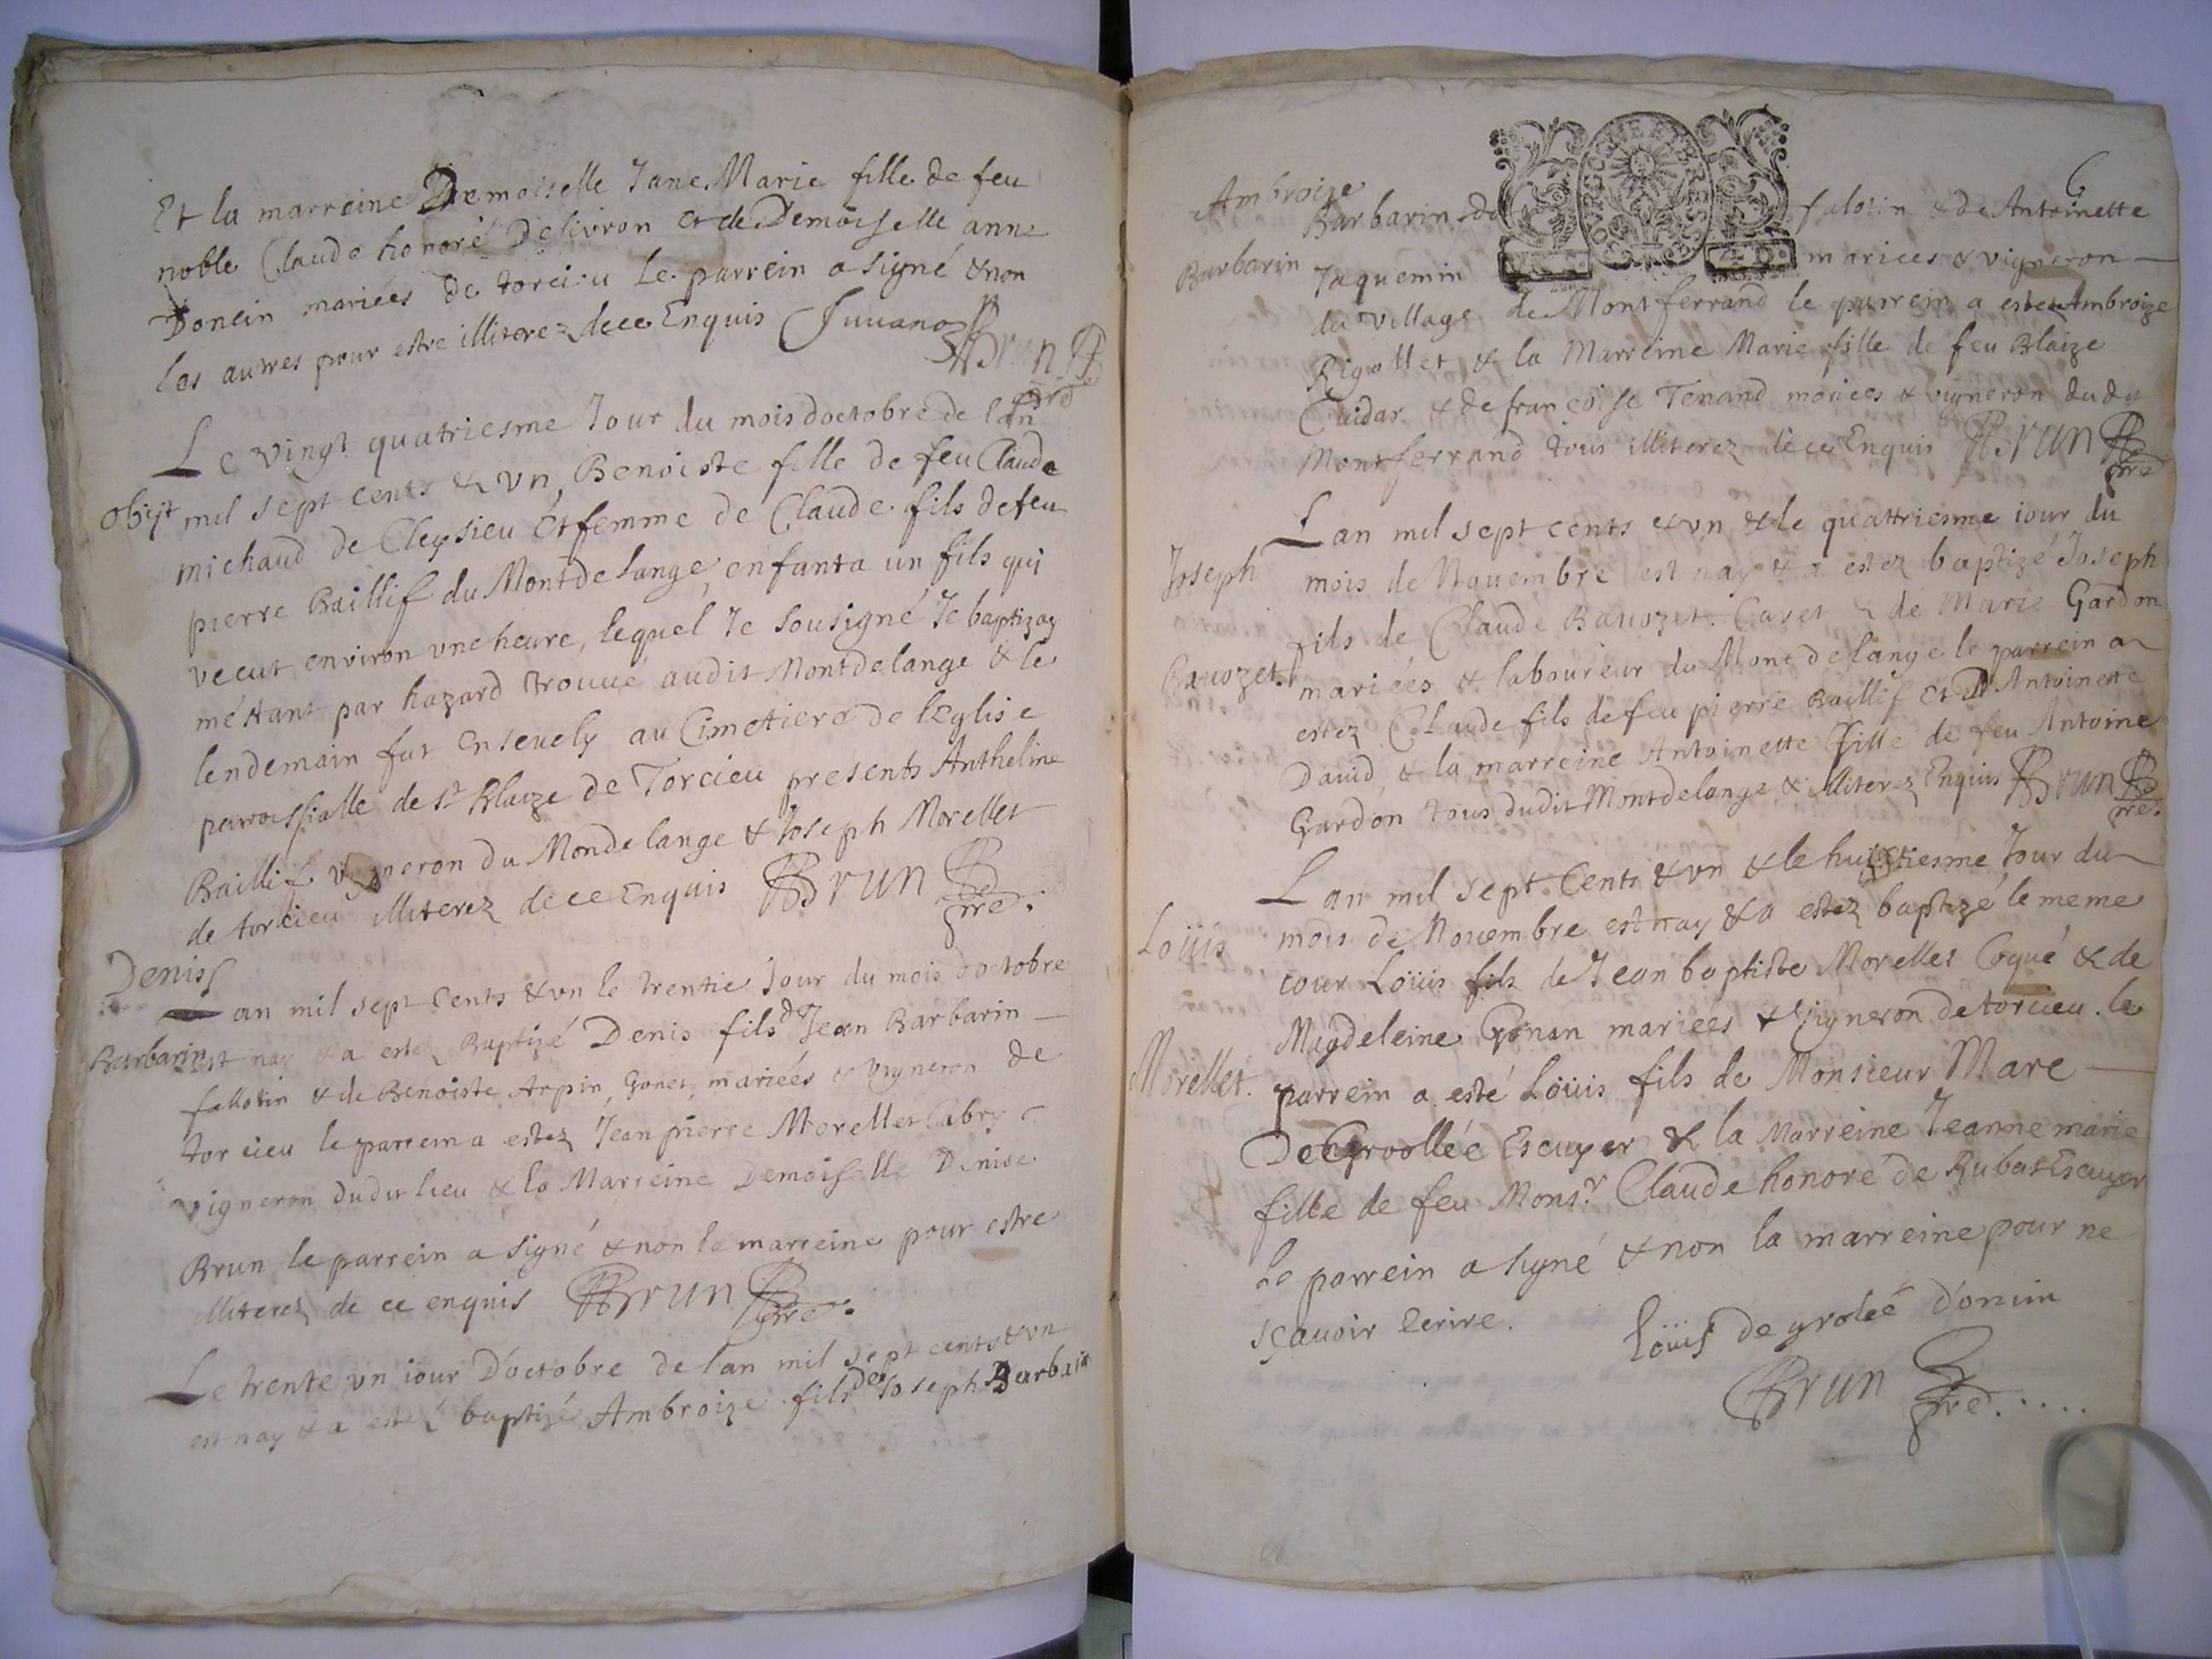 Et la marreine Demoiselle Jane Marie fille de feu
noble Claude honoré Desivron et de Demoiselle anne
Donein mariées de torcieu Le parrein a signé & non
les autres pour estre illiterez dece Enquis Juuanon
Brun
pre
Le vingt quatriesme Jour du mois doctobre de lan
obijt mil sept cents & vn Benoiste fille de feu Claude
michaud de Cleysieu et femme de Claude fils defeu
pierre Baillif du Montdelange enfanta un fils qui
vecut environ vne heure, lequel Je sousigné Je baptizay
méstant par hazard trouué audit Montdelange & le
lendemain fut enseuely au Cimetiere de lEglise
paroissialle de st Blaize de Torcieu presents Antheline
Baillif vigneron du Mondelange & Joseph Morellet
de torcieu illiterez dece Enquis Brun
pre.
Denis
Lan mil sept cents & vn le trentie Jour du mois doctobre
Barbarin est nay & a estez Baptizé Denis fils de Jean Barbarin
fallotin & de Benoiste Arpin, Gonet, mariées & vigneron de
torcieu le parrein a estez Jean pierre Morellet Cabry
vigneron dudit lieu & la Marreine Demoiselle Denise
Brun le parrein a signé & non la marreine pour estre
illiterez de ce enquis Brun
pre.
Le trente vn iour D'octobre de lan mil sept cents & vn
est nay & a estéz baptizé Ambroize fils de Joseph Barbarin
6
Ambroize
Barbarin de falotin & de Antoinette
Barbarin Jaquemin mariees & vigneron
du village de Montferrand le parrein a estez Ambroize
Rigollet & la Marreine Marie fille de feu Blaize
Cuidar & de francoise Tenand mariees & vigneron dudit
Montferrand tous illiterez dece Enquis Brun
pre
Lan mil sept cents & vn & le quattriesme iour du
Joseph mois de Nouembre est nay & a estez baptizé Joseph
fils de Claude Bauozet Cavet & de Marie Gardon
Bauozet. mariées & laboureur du Mont delange le parrein a
estez Claude fils de feu pierre Baillif et D'Antoinette
Dauid, & la marreine Antoinette fille de feu Antoine
Gardon tous dudit Montdelange & illiterez Enquis Brun
pre.
Lan mil sept Cents & vn & le huictiesme Jour du
Loüis mois de Nouembre est nay & a estez baptizé le meme
iour Loüis fils de Jean baptiste Morellet Coqué & de
Magdeleine Gonan mariees & vigneron de torcieu. le
Morellet. parrein a esté Loüis fils de Monsieur Marc
De Groollée Escuyer & la Marreine Jeanne marie
fille de feu Monsr. Claude honoré de Rubat Escuyer
Le parrein a signé & non la marreine pour ne
scauoir Ecrire. loüis de grolée d'onim
Brun
pre.....